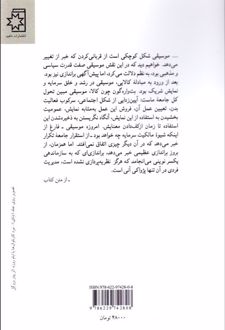 انتشارات ناهید
... موسیقی شکل کوچکی است از قربانی‌کردن که خبر از تغییر
می‌دهد. خواهیم دید که در این نقش موسیقی صفت قدرت سیاسی
و مذهبی بود، به نظم دلالت می‌کرد، اما پیش‌آگهی براندازی نیز بود.
بعد از ورود به مبادلهٔ کالایی، موسیقی در رشد و خلق سرمایه و
نمایش شریک بود. بت‌واره‌گون چون کالا، موسیقی مبین تحول
کل جامعه ماست: آیین‌زدایی از شکل اجتماعی، سرکوب فعالیت
بدن، تعیین عمل آن، فروش این عمل به‌مثابه نمایش، عمومیت
بخشیدن به استفاده از این نمایش، آنگاه نگریستن به ذخیره‌شدن این
استفاده تا زمان ازکف‌دادن معنایش. امروزه موسیقی - فارغ از
اینکه شیوهٔ مالکیت سرمایه چه خواهد بود - از استقرار جامعهٔ تکرار
خبر می‌دهد که در آن دیگر چیزی اتفاق نمی‌افتد. اما همزمان، از
بروز براندازی عظیمی خبر می‌دهد، براندازی‌ای که به سازماندهی
یکسر نوینی می‌انجامد که هرگز نظریه‌پردازی نشده است، مدیریت
فردی در آن تنها پژواکی آنی است.
- از متن کتاب
ISBN 978-622-97428-0-8
9 786229 742808
۴۸۰۰۰ تومان